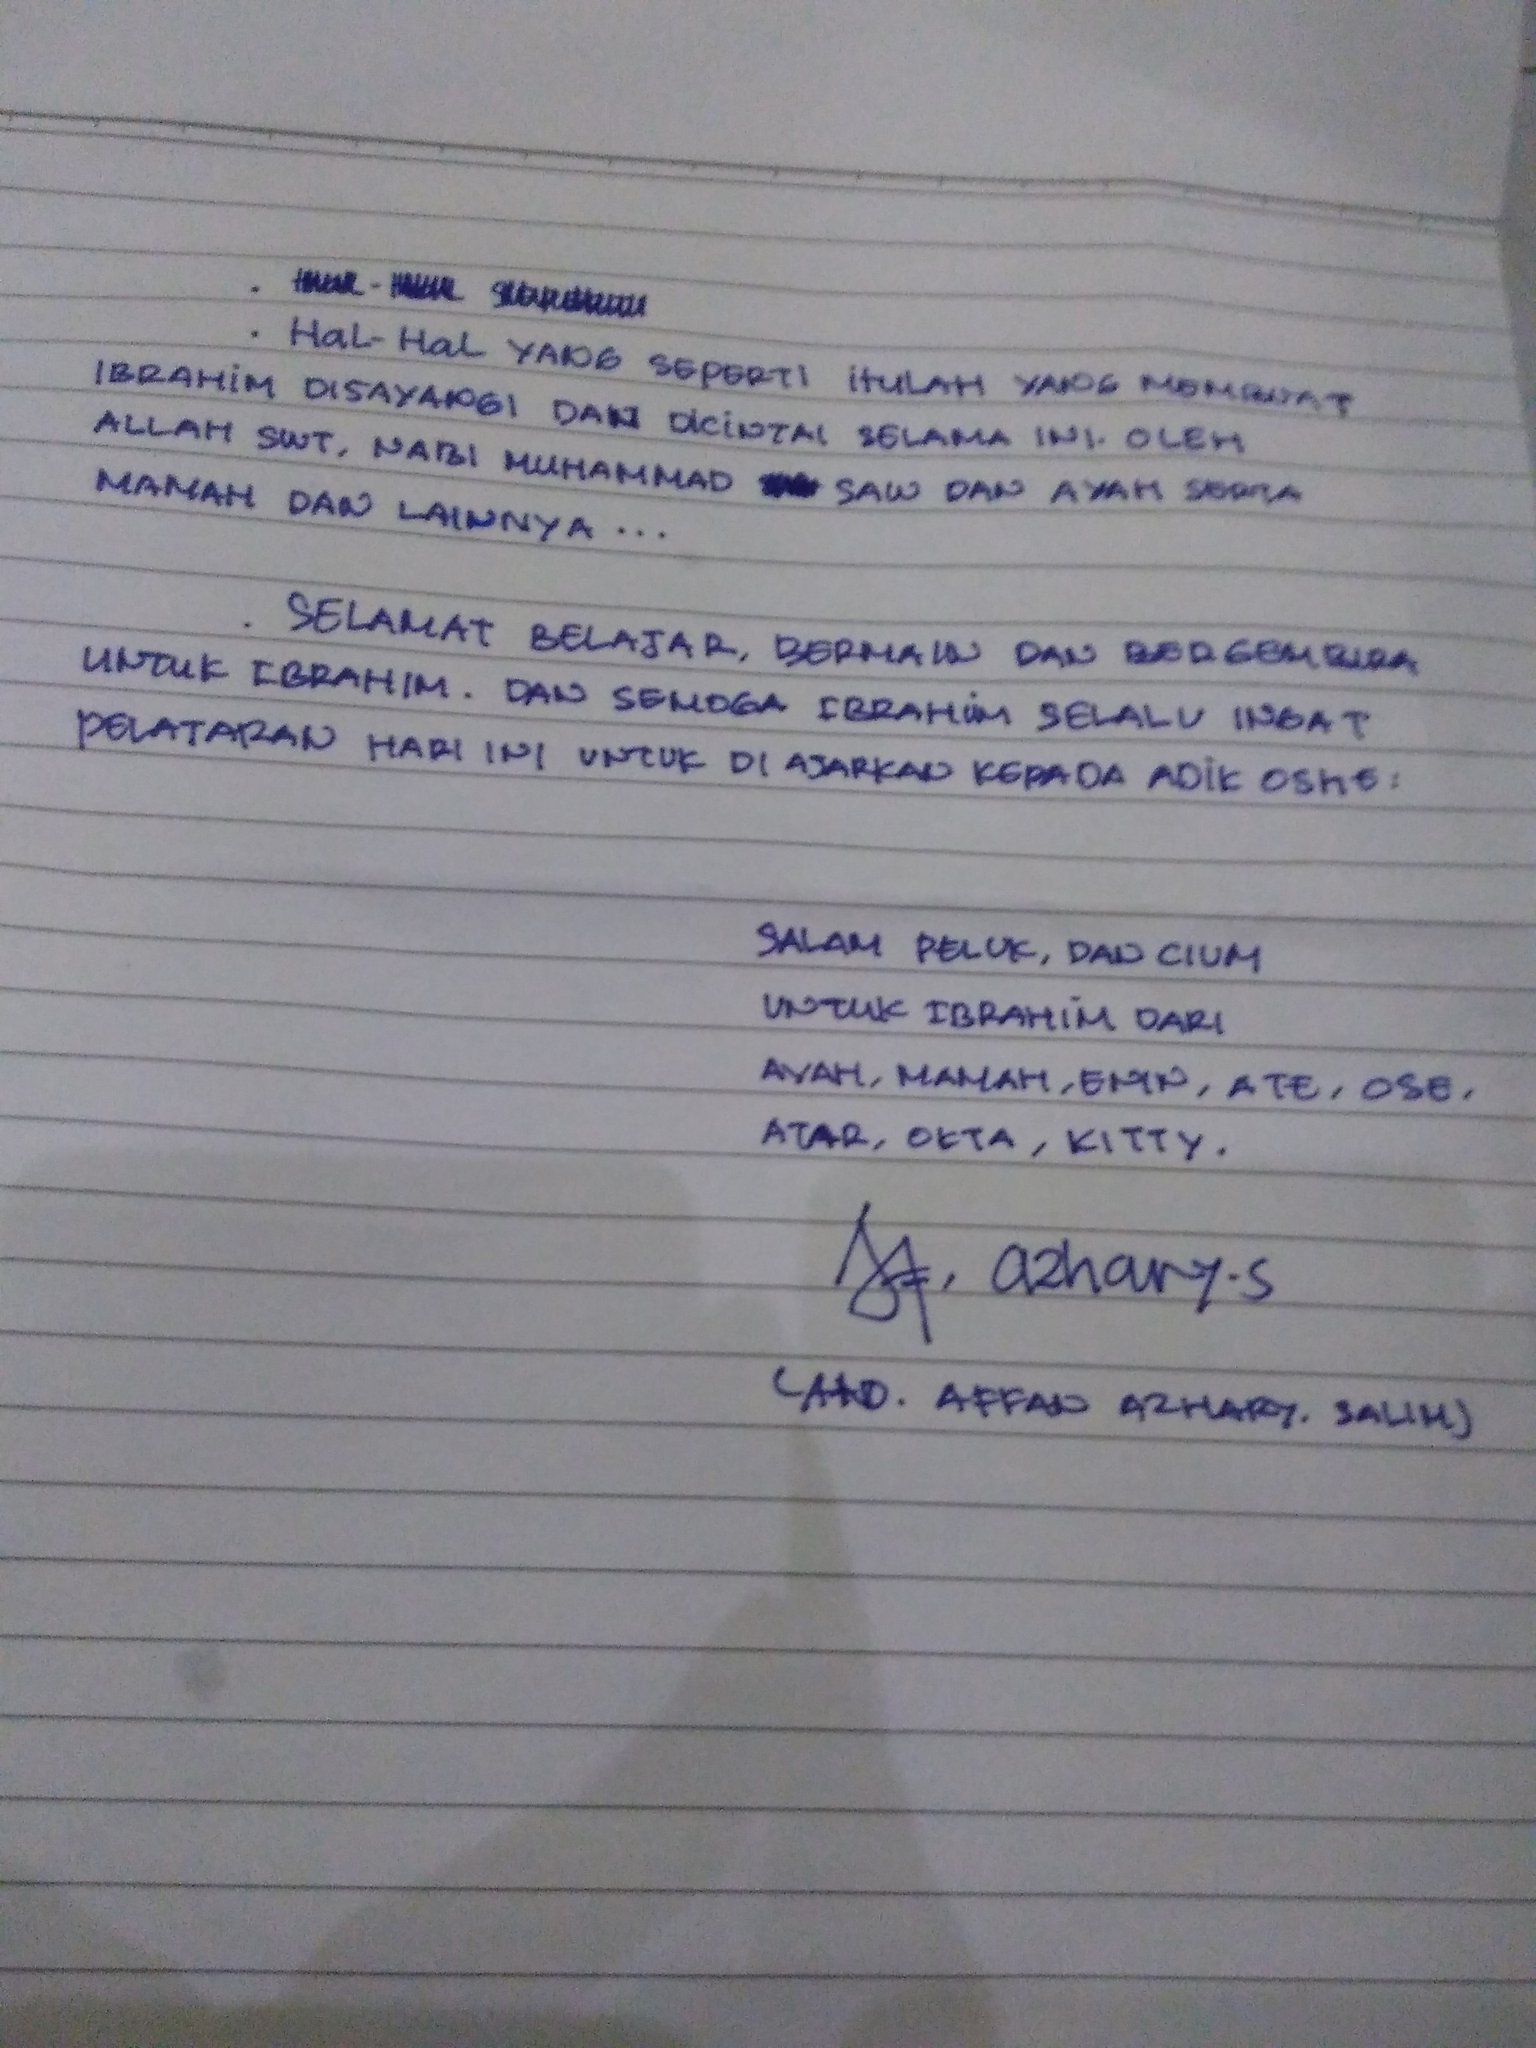 . Hal-Hal YANG SEPERTI iTULAH YANG MEMBUAT
IBRAHiM DISAYANGI DAN DiCiNTAI SELAMA INI. OLEH
ALLAH SWT, NABI MUHAMMAD SAW DAN AYAH SERTA
MAMAH DAN LAINNYA ...
. SELAMAT BELAJAR, BERMAIN DAN BERGEMBIRA
UNTUK IBRAHIM. DAN SEMOGA IBRAHiM SELALU INGAT
PELATARAN HARI INI UNTUK DI AJARKAN KEPADA ADiK OSHE:
SALAM PELUK, DAN CIUM
UNTUK IBRAHiM DARI
AYAH, MAMAH, ENIN, ATE, OSE,
ATAR, OKTA, KITTY.
azhary.s
AFFAN AZHARY. SALIH)